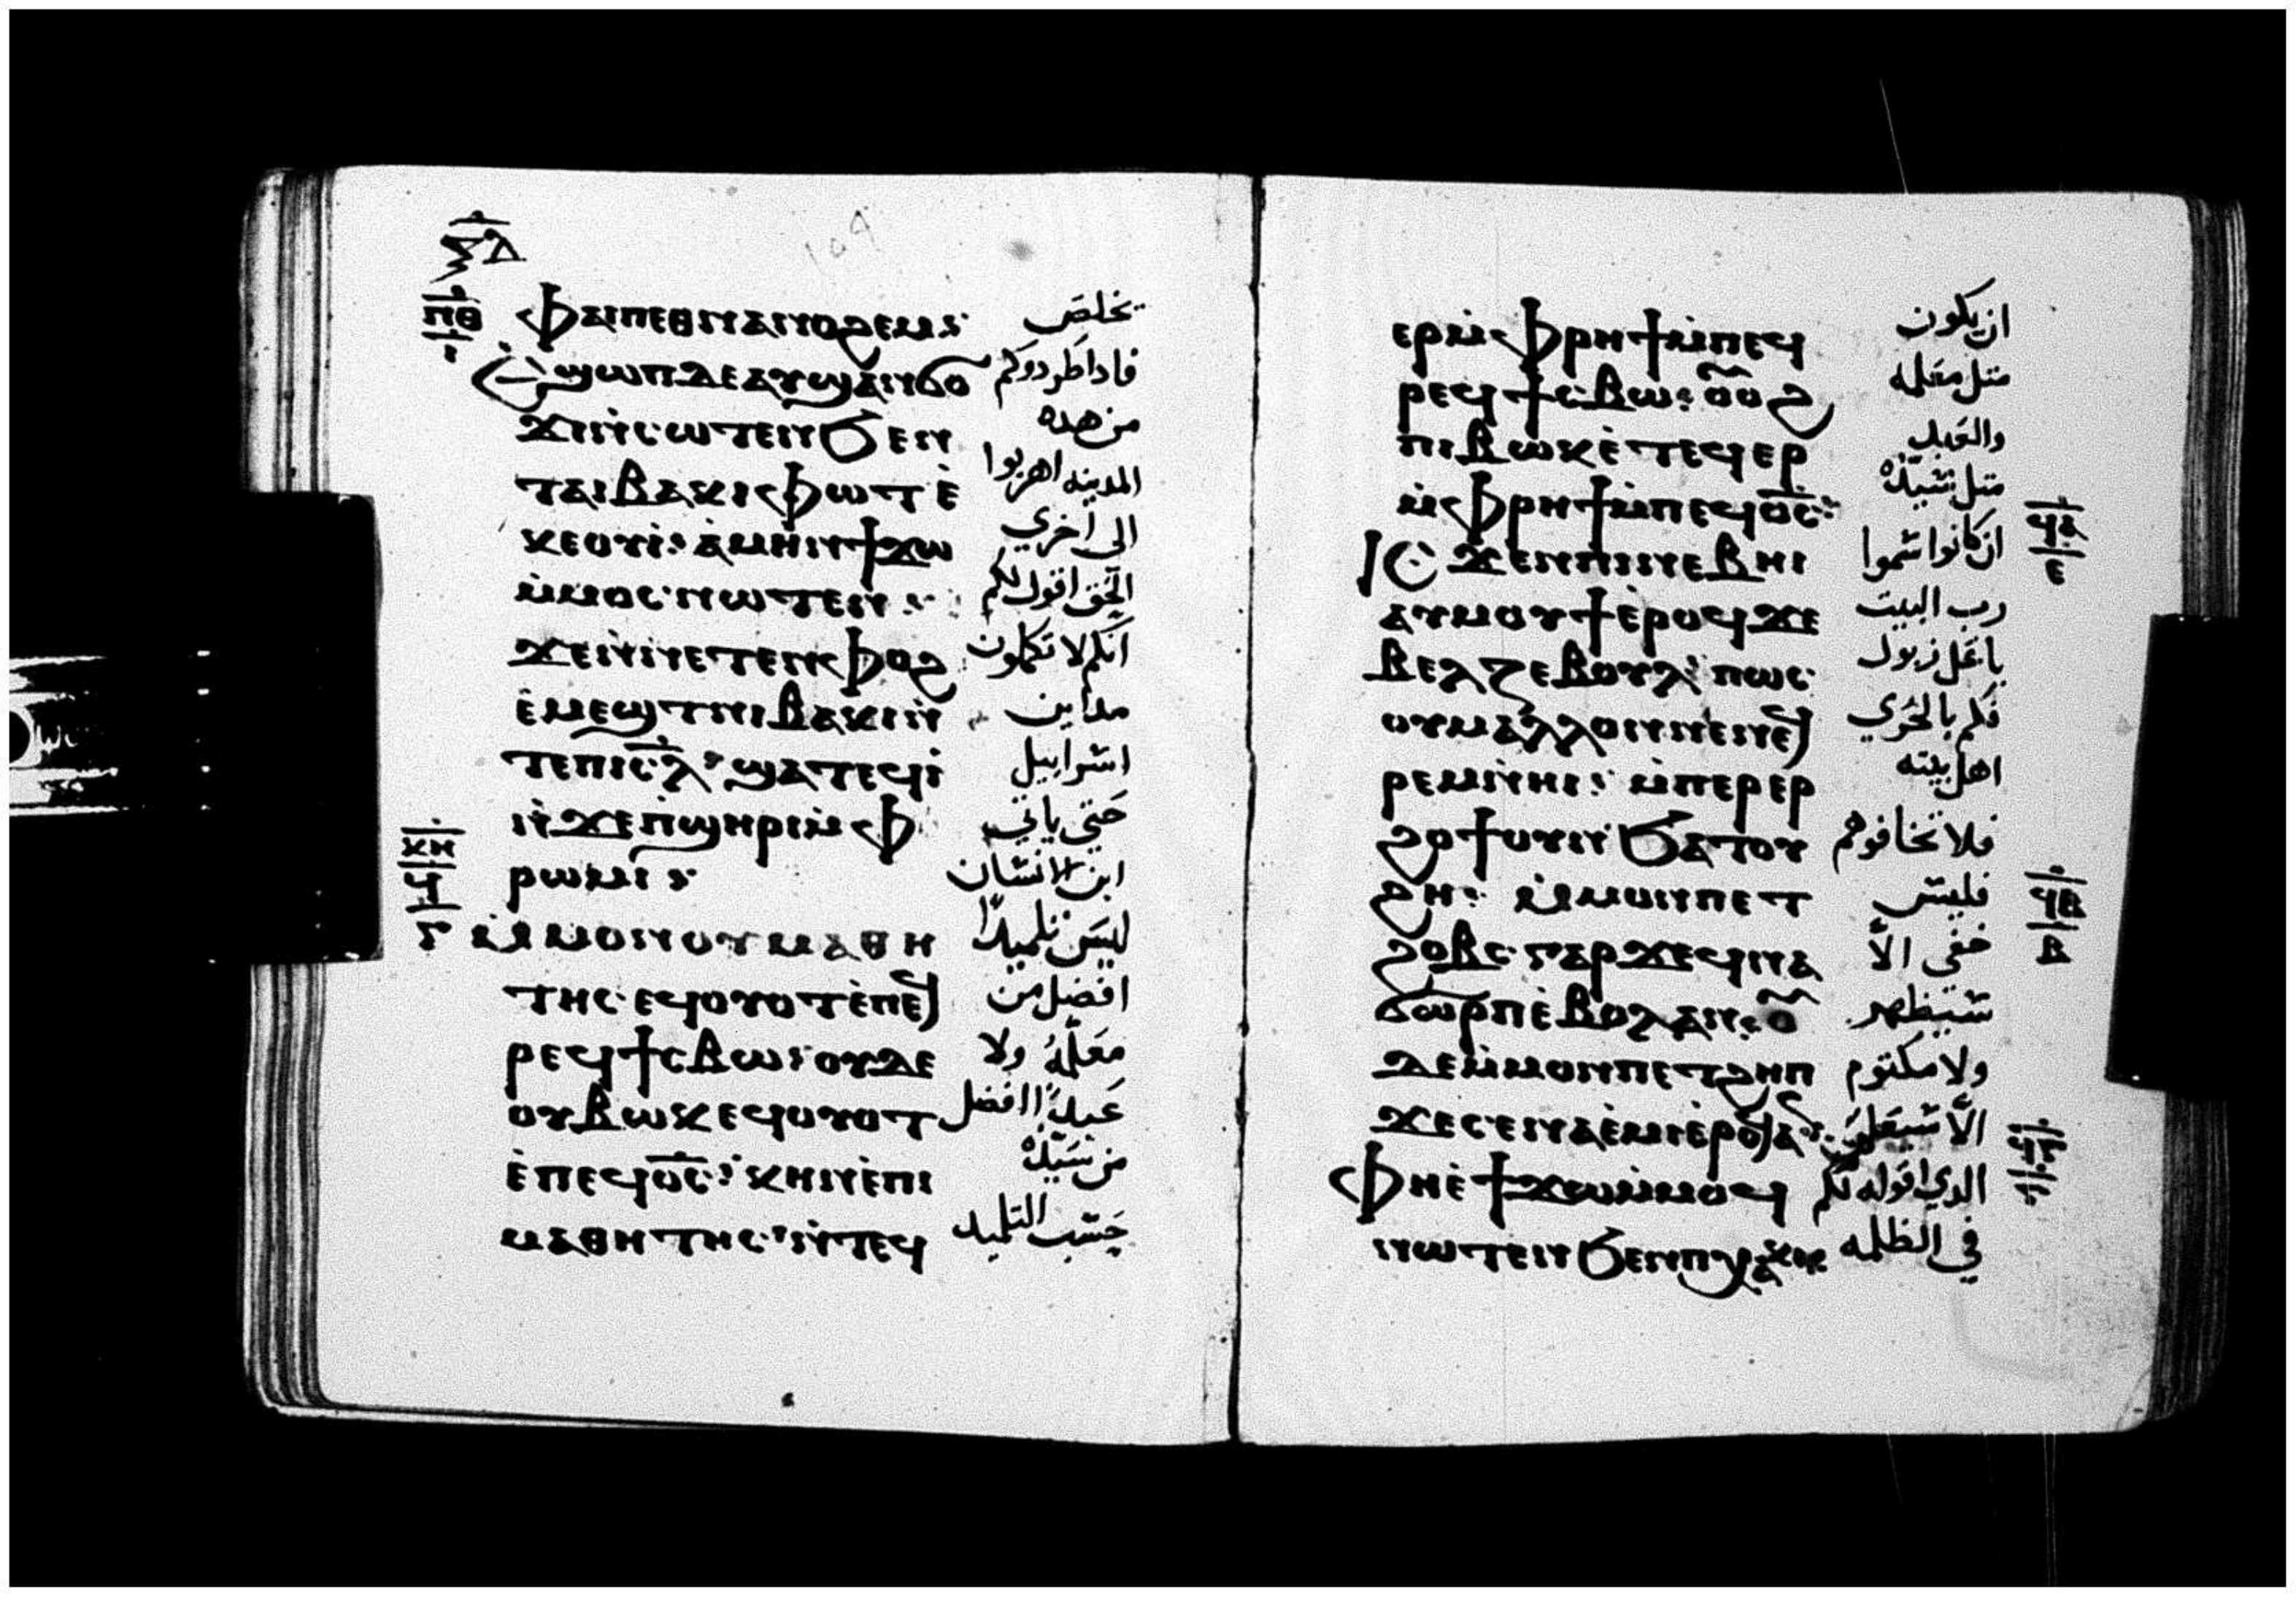 ⲝⲇ
ⲡⲑ ⲫⲁⲓⲡⲉⲑⲛⲁⲛⲟϩⲉⲙ⳾ تخلص
ⲓ ⲉϣⲱⲡⲇⲉⲁⲩϣⲁⲛϭⲟ فاداطردوكم
ϫⲓⲛ̀ⲥⲱⲧⲉⲛϧⲉⲛ من هده
ⲧⲁⲓⲃⲁⲕⲓⲫⲱⲧⲉ̀ المدينه اهربوا
ⲕⲉⲟⲩⲓ̀⳾ ⲁ̀ⲙⲏⲛϯϫⲱ الى اخري
ⲙ̀ⲙⲟⲥⲛⲱⲧⲉⲛ⳾ الحق اقول لكم
ϫⲉⲛ̀ⲛⲉⲧⲉⲛⲫⲟϩ انكم لا تكملون
ⲉ̀ⲙⲉϣⲧⲛⲓⲃⲁⲕⲓⲛ̀ مداين
ⲧⲉⲡⲓⲥ̅ⲗ⳾ ϣⲁⲧⲉϥⲓ̀ اسرابيل
ⲛ̀ϫⲉⲡ̀ϣⲏⲣⲓⲙ̀ⲫ حتي ياتي
ⲕⲏ ⲣⲱⲙⲓ⳾ ابن الانسان
ϥ
ⲅ ⲙ̀ⲙⲟⲛⲟⲩⲙⲁⲑⲏ ليس تلميدًا
ⲧⲏⲥⲉϥⲟⲩⲟⲧⲉ̀ⲡⲉϥ افضل من
ⲣⲉϥϯⲥⲃⲱ⳾ⲟⲩⲇⲉ معلمه ولا
ⲟⲩⲃⲱⲕⲉϥⲟⲩⲟⲧ عبدًا افضل
ⲉ̀ⲡⲉϥⲟ̅ⲥ̅⳾ ⲕⲏⲛⲉ̀ⲡⲓ من سيده
ⲙⲁⲑⲏⲧⲏⲥ⳾ⲛ̀ⲧⲉϥ حسب التلميد
ⲉⲣⲙ̀ⲫⲣⲏϯⲙ̀ⲡⲉϥ ان يكون
ⲣⲉϥϯⲥⲃⲱ⳾ ⲟⲩⲟϩ متل معلمه
ⲡⲓⲃⲱⲕⲉ̀ⲧⲉϥⲉⲣ والعبد
ⲙ̀ⲫⲣⲏϯⲙ̀ⲡⲉϥⲟ̅ⲥ̅⳾ متل سيده
ϥⲁ ⲓⲥϫⲉⲛⲡⲓⲛⲉⲃⲏⲓ ان كانوا سموا
ⲉ ⲁⲩⲙⲟⲩϯⲉ̀ⲣⲟϥϫⲉ رب البيت
ⲃⲉⲗⲍⲉⲃⲟⲩⲗ⳾ ⲡⲱⲥ باعل زبول
ⲟⲩⲙⲁⲗⲗⲟⲛⲛⲉⲛⲉϥ فكم بالحري
ⲣⲉⲙⲛ̀ⲏⲓ⳾ ⲙ̀ⲡⲉⲣⲉⲣ اهل بيته
ϩⲟϯⲟⲩⲛϧⲁⲧⲟⲩ فلا تخافوهم
ϥⲃ ϩⲏ⳾ ⲙ̀ⲙⲟⲛⲡⲉⲧ فليس
ⲃ ϩⲟⲃⲥⲅⲁⲣϫⲉϥⲛⲁ خفي الاّ
ϭⲱⲣⲡⲉ̀ⲃⲟⲗⲁⲛ⳾ⲟⲩ سيظهر
ⲇⲉⲙ̀ⲙⲟⲛⲡⲉⲧϩⲏⲡ ولا مكتوم
ϥⲅ ϫⲉⲥⲉⲛⲁⲉ̀ⲙⲓⲉ̀ⲣⲟϥⲁⲛ⳾ الاّ سيعلن
ⲫⲏⲉ̀ϯϫⲱⲙ̀ⲙⲟϥ الدي اقوله لكم
ⲛⲱⲧⲉⲛϧⲉⲛⲡⲭⲁⲕⲓ في الظلمه